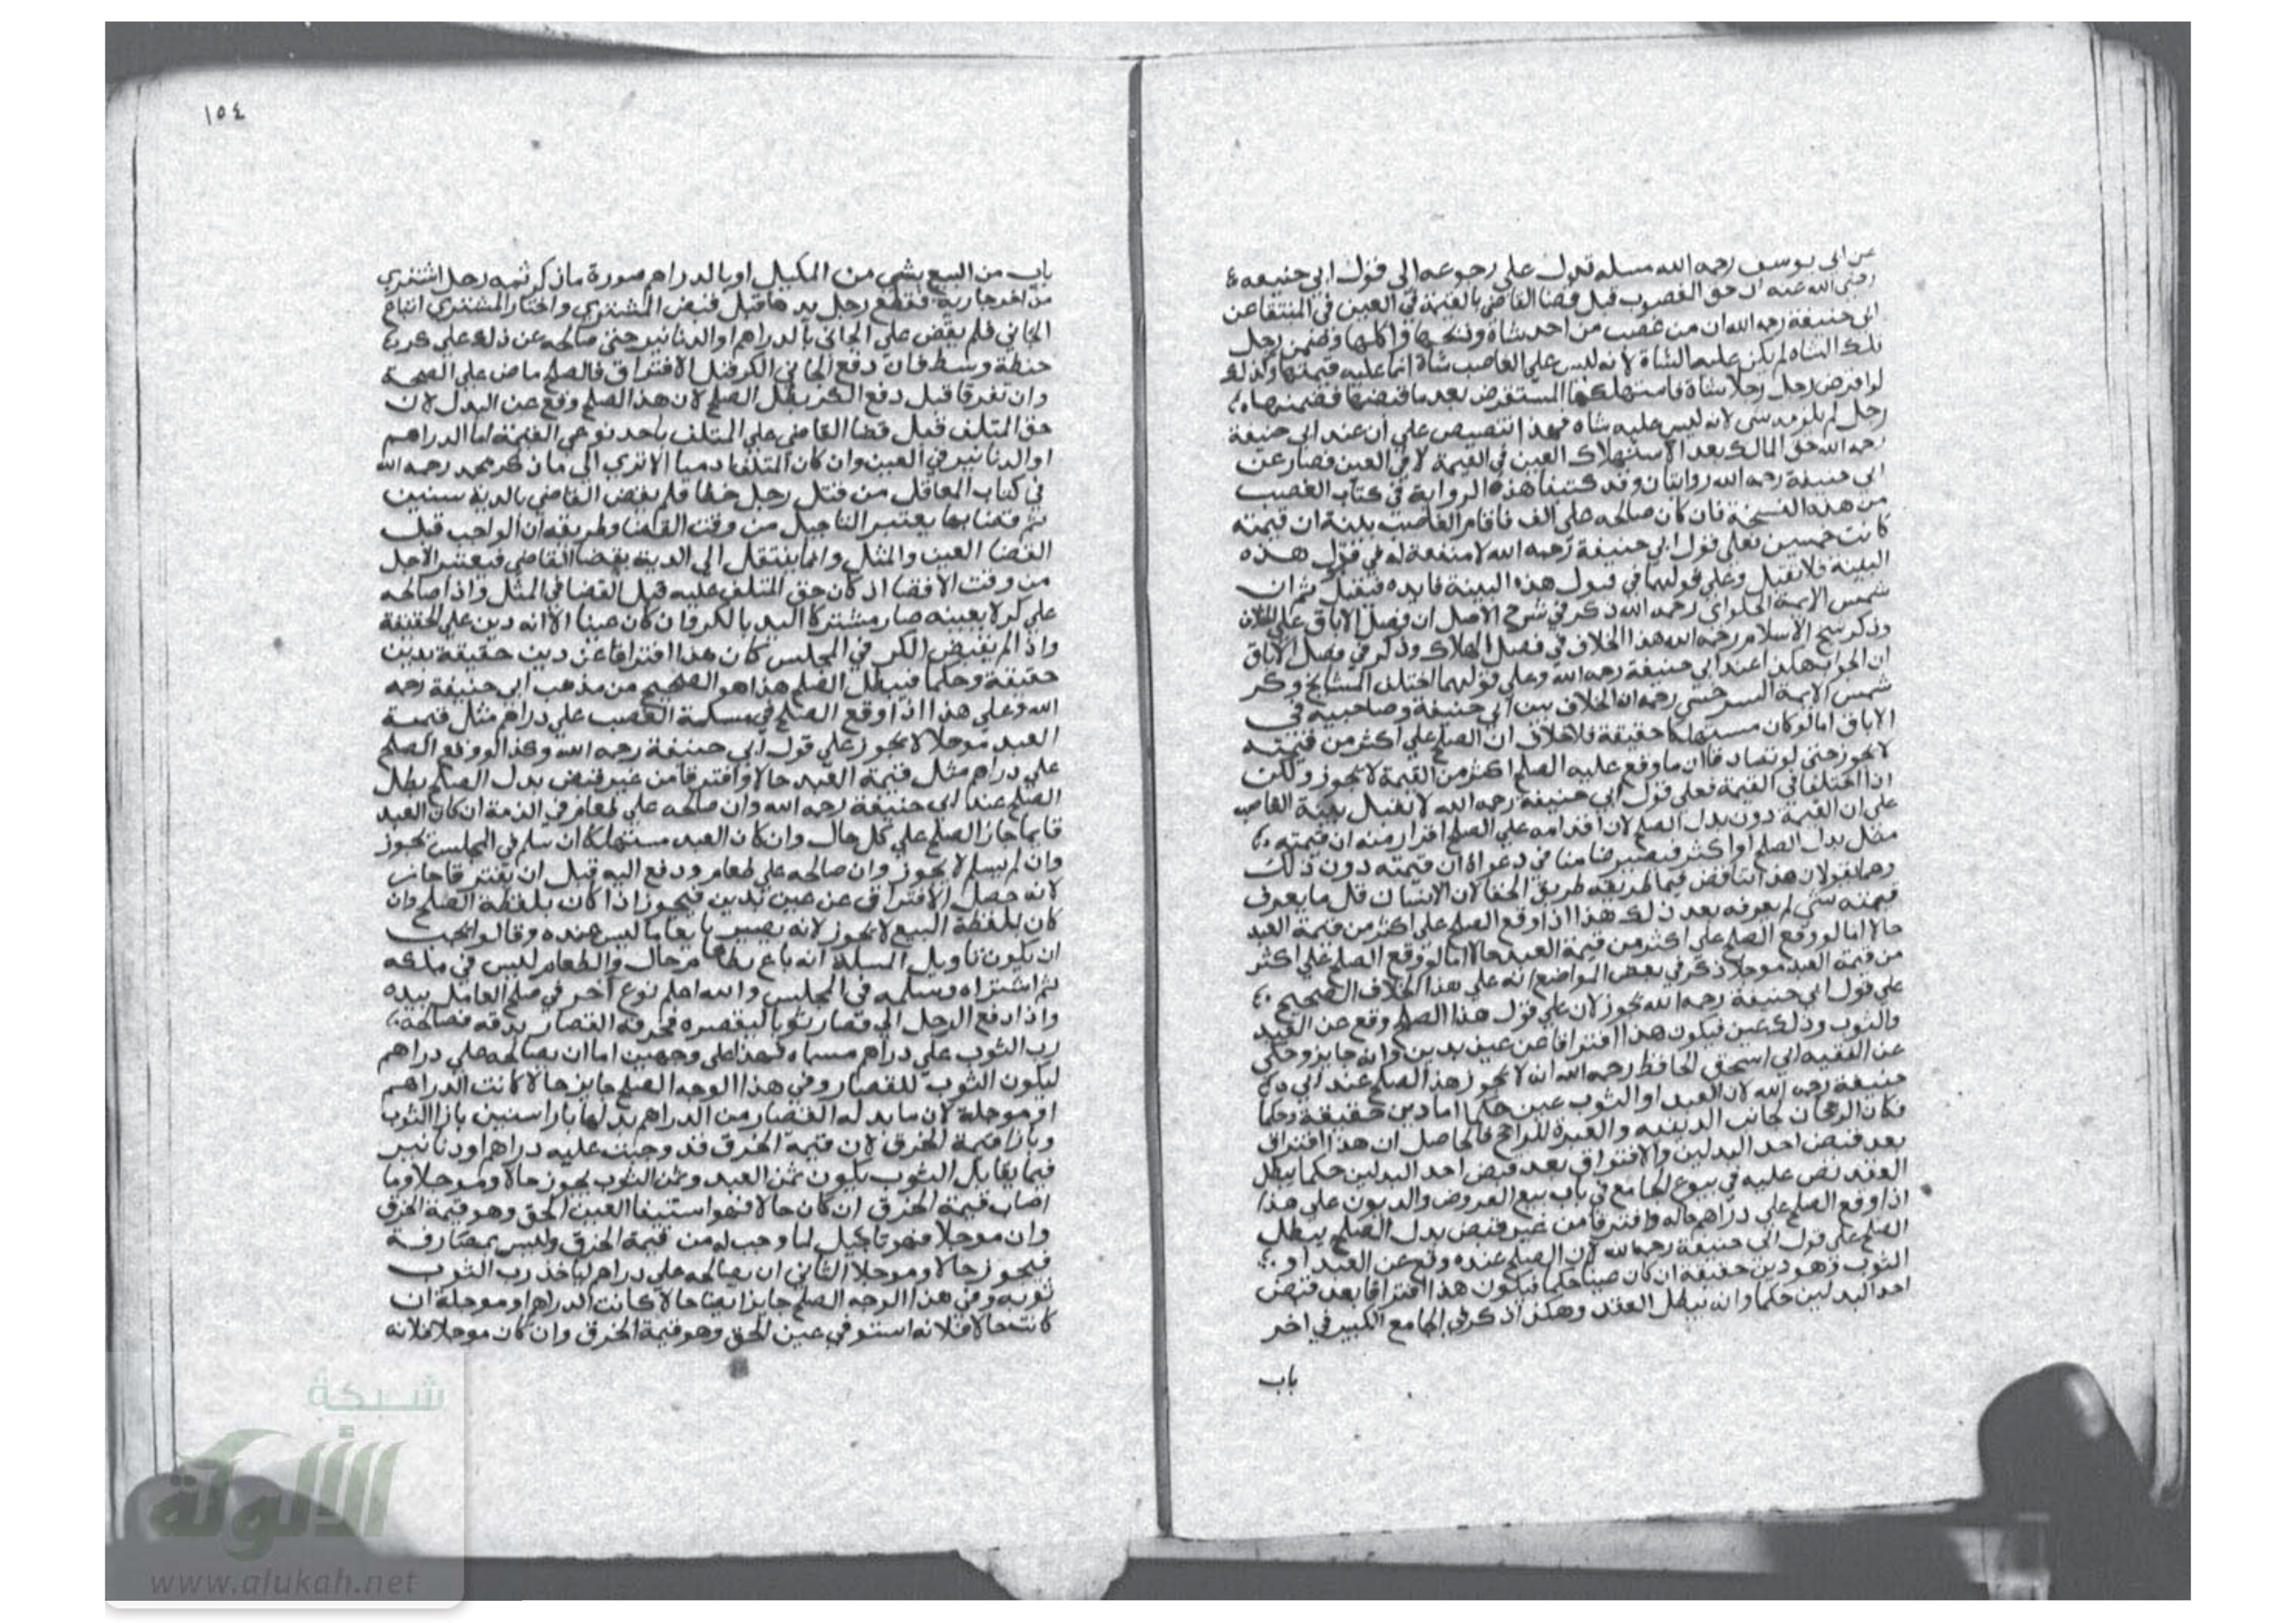 عن ابى يوسف رحمه الله مسله تدل على رجوعه الى قول ابى حنيفه
رضى الله عنه ان حق المغصوب قبل قضا القاضى بالقيمة فى العين فى المنتقا عن
ابى حنيفة رحمه الله ان من غصب من احد شاة وذبحها واكلها وضمن رجل
تلك الشاه لم يكن عليه الشاة لانه ليس على الغاصب شاة انما عليه قيمتها وكذلك
لو اقرض رجل رجلا شاة فاستهلكها المستقرض بعد ما قبضها فضمنها
رجل لم يلزمه شى لانه ليس عليه شاه فهذا تنصيص على ان عند ابى حنيفة
رحمه الله حق المالك بعد الاستهلاك العين فى القيمة لا فى العين فصار عن
ابى حنيفة رحمه الله روايتان وقد كتبنا هذه الرواية فى كتاب الغصب
من هذه النسخة فان كان صالحه على الف فاقام الغاصب بينة ان قيمته
كانت خمسين فعلى قول ابى حنيفة رحمه الله لا منفعة له فى قول هذه
البينة فلا تقبل وعلى قولهما فى قبول هذه البينة فايده فتقبل ثم ان
شمس الايمة الحلواى رحمه الله ذكر فى شرح الاصل ان فصل الاباق على الخلاف
وذكر شيخ الاسلام رحمه الله هذا الخلاف فى فصل الهلاك وذكر فى فصل الاباق
ان الجواب هكذا عند ابى حنيفة رحمه الله وعلى قولهما اختلف المشايخ وذكر
شمس الايمة السرخسى رحمه الله الخلاف بين ابى حنيفة وصاحبيه فى
الاباق اما لو كان مستهلكا حقيقة فلا خلاف ان الصلح على اكثر من قيمته
لا يجوز حتى لو تصادقا ان ما وقع عليه الصلح اكثر من القيمة لا يجوز ولكن
اذا اختلفا فى القيمة فعلى قول ابى حنيفة رحمه الله لا تقبل بينة الغاصب
على ان القيمة دون بدل الصلح لان اقدامه على الصلح اقرار منه ان قيمته
مثل بدل الصلح او اكثر فيصير ضامنا فى دعواه ان قيمته دون ذلك
وهما يقولان هذا التناقض فيما طريقه طريق الخفا لان الانسان قل ما يعرف
قيمته شى لم يعرفه بعد ذلك هذا اذا وقع الصلح على اكثر من قيمة العبد
حالا اما لو وقع الصلح على اكثر من قيمة العبد حالا اما لو وقع الصلح على اكثر
من قيمة العبد موجلا ذكر فى بعض المواضع انه على هذا الخلاف الصحيح
على قول ابى حنيفة رحمه الله يجوز لان على قول هذا الصلح وقع عن العبد
والثوب وذلك عين فيكون هذا افتراقا عن عين بدين وانه جايز وحكى
عن الفقيه ابى اسحق الحافظ رحمه الله انه لا يجوز هذا الصلح عند ابى
حنيفة رحمه الله لان العبد او الثوب عين حكما اما دين حقيقة وحكما
فكان الرجحان لجانب الدينيه والعبرة للراجح فالحاصل ان هذا افتراق
بعد قبض احد البدلين والافتراق بعد قبض احد البدلين حكما يبطل
العقد نص عليه فى بيوع الجامع فى باب بيع العروض والديون على هذا
اذا وقع الصلح على دراهم حاله وافترقا من غير قبض بدل الصلح يبطل
الصلح على قول ابى حنيفة رحمه الله لان الصلح عنده وقع عن العبد او
الثوب وهو دين حقيقة ان كان عينا حكما فيكون هذا افتراقا بعد قبض
احد البدلين حكما وانه يبطل العقد وهكذا ذكر فى الجامع الكبير فى اخر
باب
١٥٤
باب من البيع بشى من المكيل او بالدراهم صورة ما ذكر ثمه رجل اشترى
من اخر جارية فقطع رجل يدها قبل قبض المشترى واختار المشترى اتباع
الجانى فلم يقض على الجانى بالدراهم او الدنانير حتى صالحه عن ذلك على كر
حنطة وسط فان دفع الجانى الكر قبل الافتراق فالصلح ماض على الصحة
وان تفرقا قبل دفع الكر بطل الصلح لان هذا الصلح وقع عن البدل لان
حق المتلف قبل قضا القاضى على المتلف باحد نوعى القيمة اما الدراهم
او الدنانير فى العين وان كان المتلف ادميا الا ترى الى ما ذكر محمد رحمه الله
فى كتاب المعاقل من قتل رجل خطا فلم يقض القاضى بالدية سنين
ثم قضا بها يعتبر التاجيل من وقت القضا وطريقه ان الواجب قبل
القضا العين والمثل وانما ينتقل الى الدية بقضا القاضى فيعتبر الاجل
من وقت الافضا اذ كان حق المتلف عليه قبل القضا فى المثل واذا صالحه
على كر لا بعينه صار مشتركا اليد بالكر فان كان عينا الا انه دين على الحقيقة
واذا لم يقبض الكر فى المجلس كان هذا افتراقا عن دين حقيقة بدين
حقيقة وحكما فيبطل الصلح هذا هو الصحيح من مذهب ابى حنيفة رحمه
الله وعلى هذا اذا وقع الصلح فى مسلة الغصب على دراهم مثل قيمة
العبد موجلا لا يجوز على قول ابى حنيفة رحمه الله وكذا لو وقع الصلح
على دراهم مثل قيمة العبد حالا وافترقا من غير قبض بدل الصلح بطل
الصلح عند ابى حنيفة رحمه الله وان صالحه على طعام فى الذمة ان كان العبد
قايما جاز الصلح على كل حال وان كان العبد مستهلكا ان سلم فى المجلس يجوز
وان لم يسلم لا يجوز وان صالحه على طعام ودفع اليه قبل ان يفترقا جاز
لانه حصل الافتراق عن عين بدين فيجوز اذا كان بلفظة الصلح وان
كان بلفظة البيع لا يجوز لانه يصير بايعا ما ليس عنده وقالوا يجب
ان يكون تاويل المسلة انه باع بطعام حال والطعام ليس فى ملكه
ثم اشتراه وسلمه فى المجلس والله اعلم نوع اخر فى صلح العامل بيده
واذا دفع الرجل الى قصار ثوبا ليقصره فخرقه القصار بدقه فصالحه
رب الثوب على دراهم مسماه فهذا على وجهين اما ان يصالحه على دراهم
ليكون الثوب للقصار وفى هذا الوجه الصلح جايز حالا كانت الدراهم
او موجلة لان ما بدله القصار من الدراهم بدلها بازا سنين بازا الثوب
وبازا قيمة الخرق لان قيمة الخرق قد وجبت عليه دراهم او دنانير
فيما يقابل الثوب يكون ثمن العبد وثمن الثوب يجوز حالا وموجلا وما
اصاب قيمة الخرق ان كان حالا فهو استيفا العين الحق وهو قيمة الخرق
وان موجلا فهو تاجيل لما وجب له من قيمة الخرق وليس بمصارفة
فيجوز حالا وموجلا الثانى ان يصالحه على دراهم لياخذ رب الثوب
ثوبه وفى هذا الوجه الصلح جايز ايضا حالا كانت الدراهم او موجلة ان
كانت حالا فلانه استوفى عين الحق وهو قيمة الخرق وان كان موجلا فلانه
شبكة
الألوكة
www.alukah.net